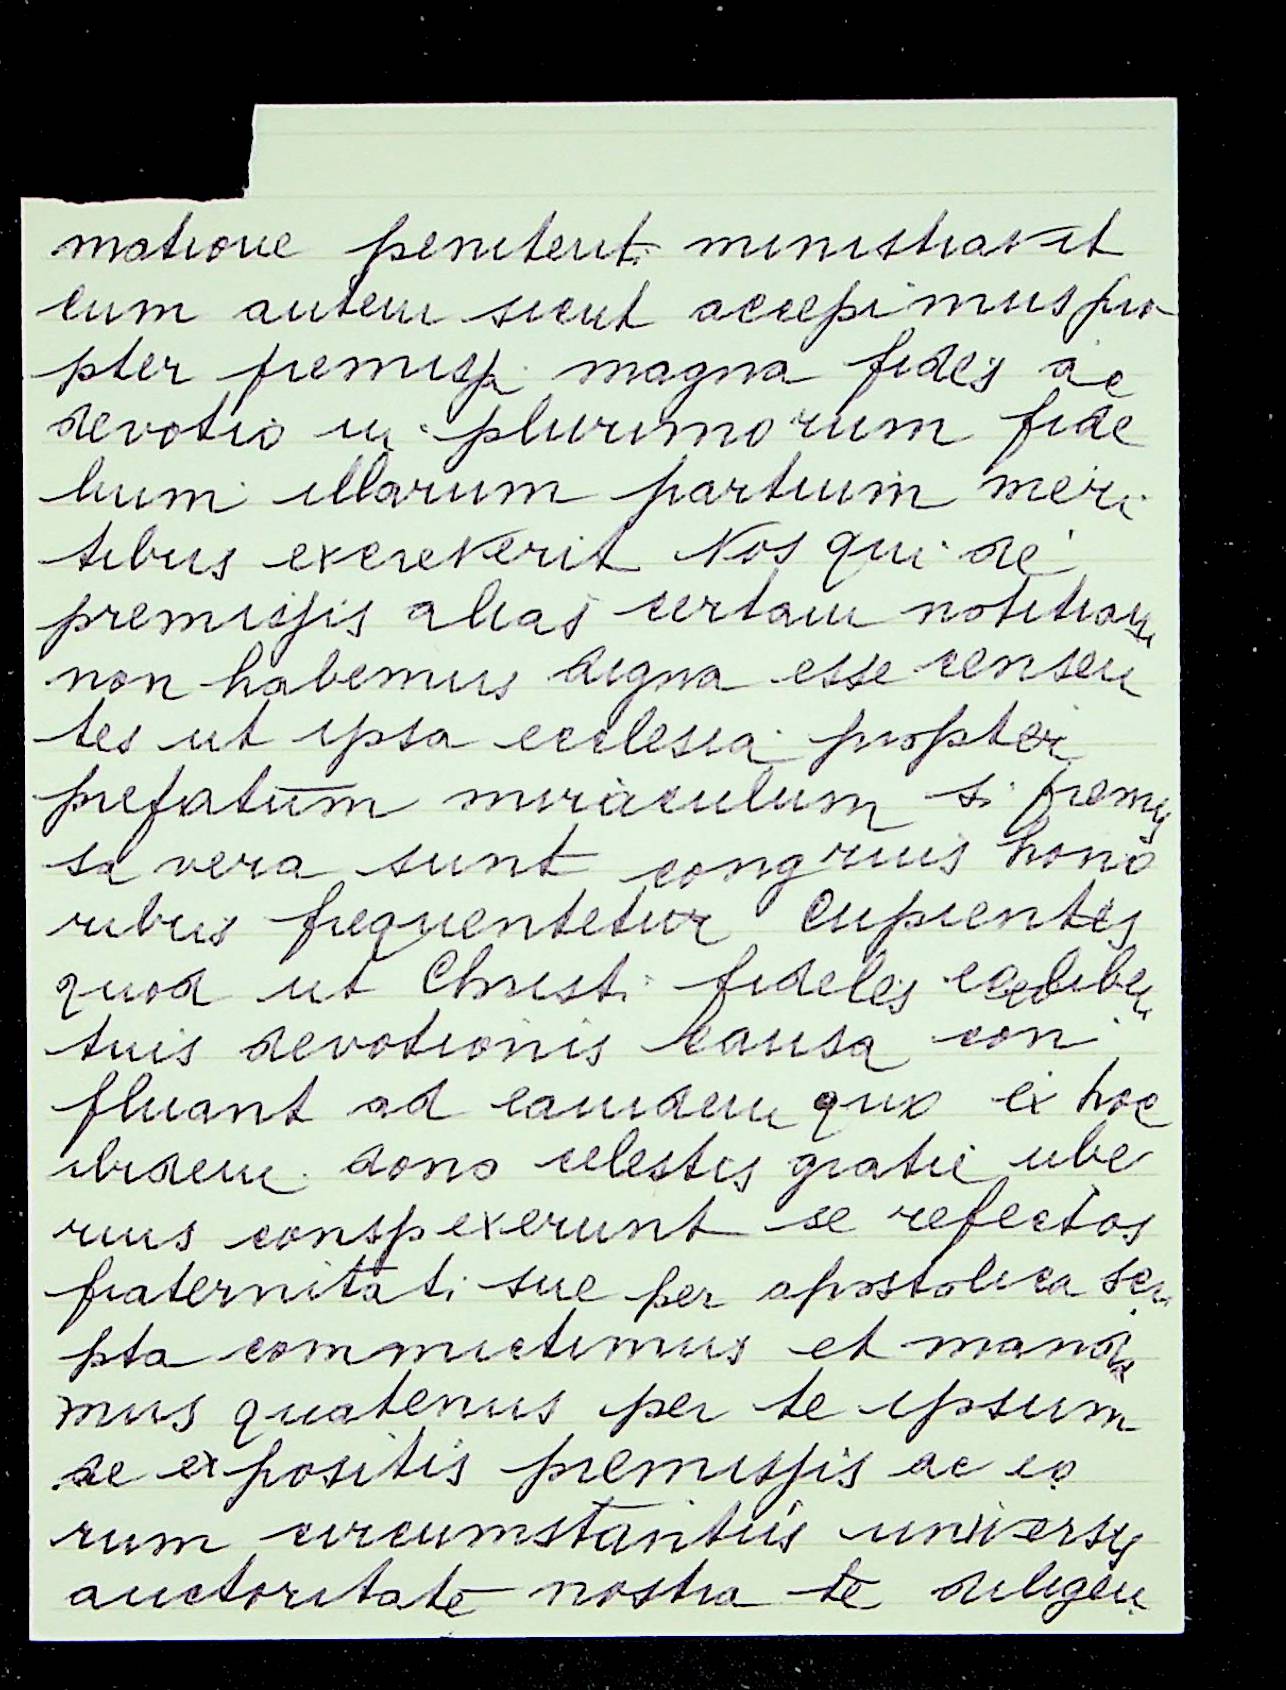 matione peniterit ministravit
cum autem sicut accepimus pro
pter premissa magna fides ac
devotio in plurimorum fide
lium illarum partium men
tibus excreverit Nos qui de
premissis alias certam notitiam
non habemus digna esse censen
tes ut ipsa ecclesia propter
prefatum miraculum si premis
sa vera sunt congruis hono
ribus frequentetur Cupientes
quod ut Christi fideles eo libe
tuis devotionis causa con
fluant ad eamdem quo ex hoc
ibidem dono celestis gratie ube
rius conspexerunt se refectos
fraternitati sue per apostolica scri
pta commictimus et manda
mus quatenus per te ipsum
de expositis premissis ac eo
rum circumstantiis universis
auctoritate nostra te diligen